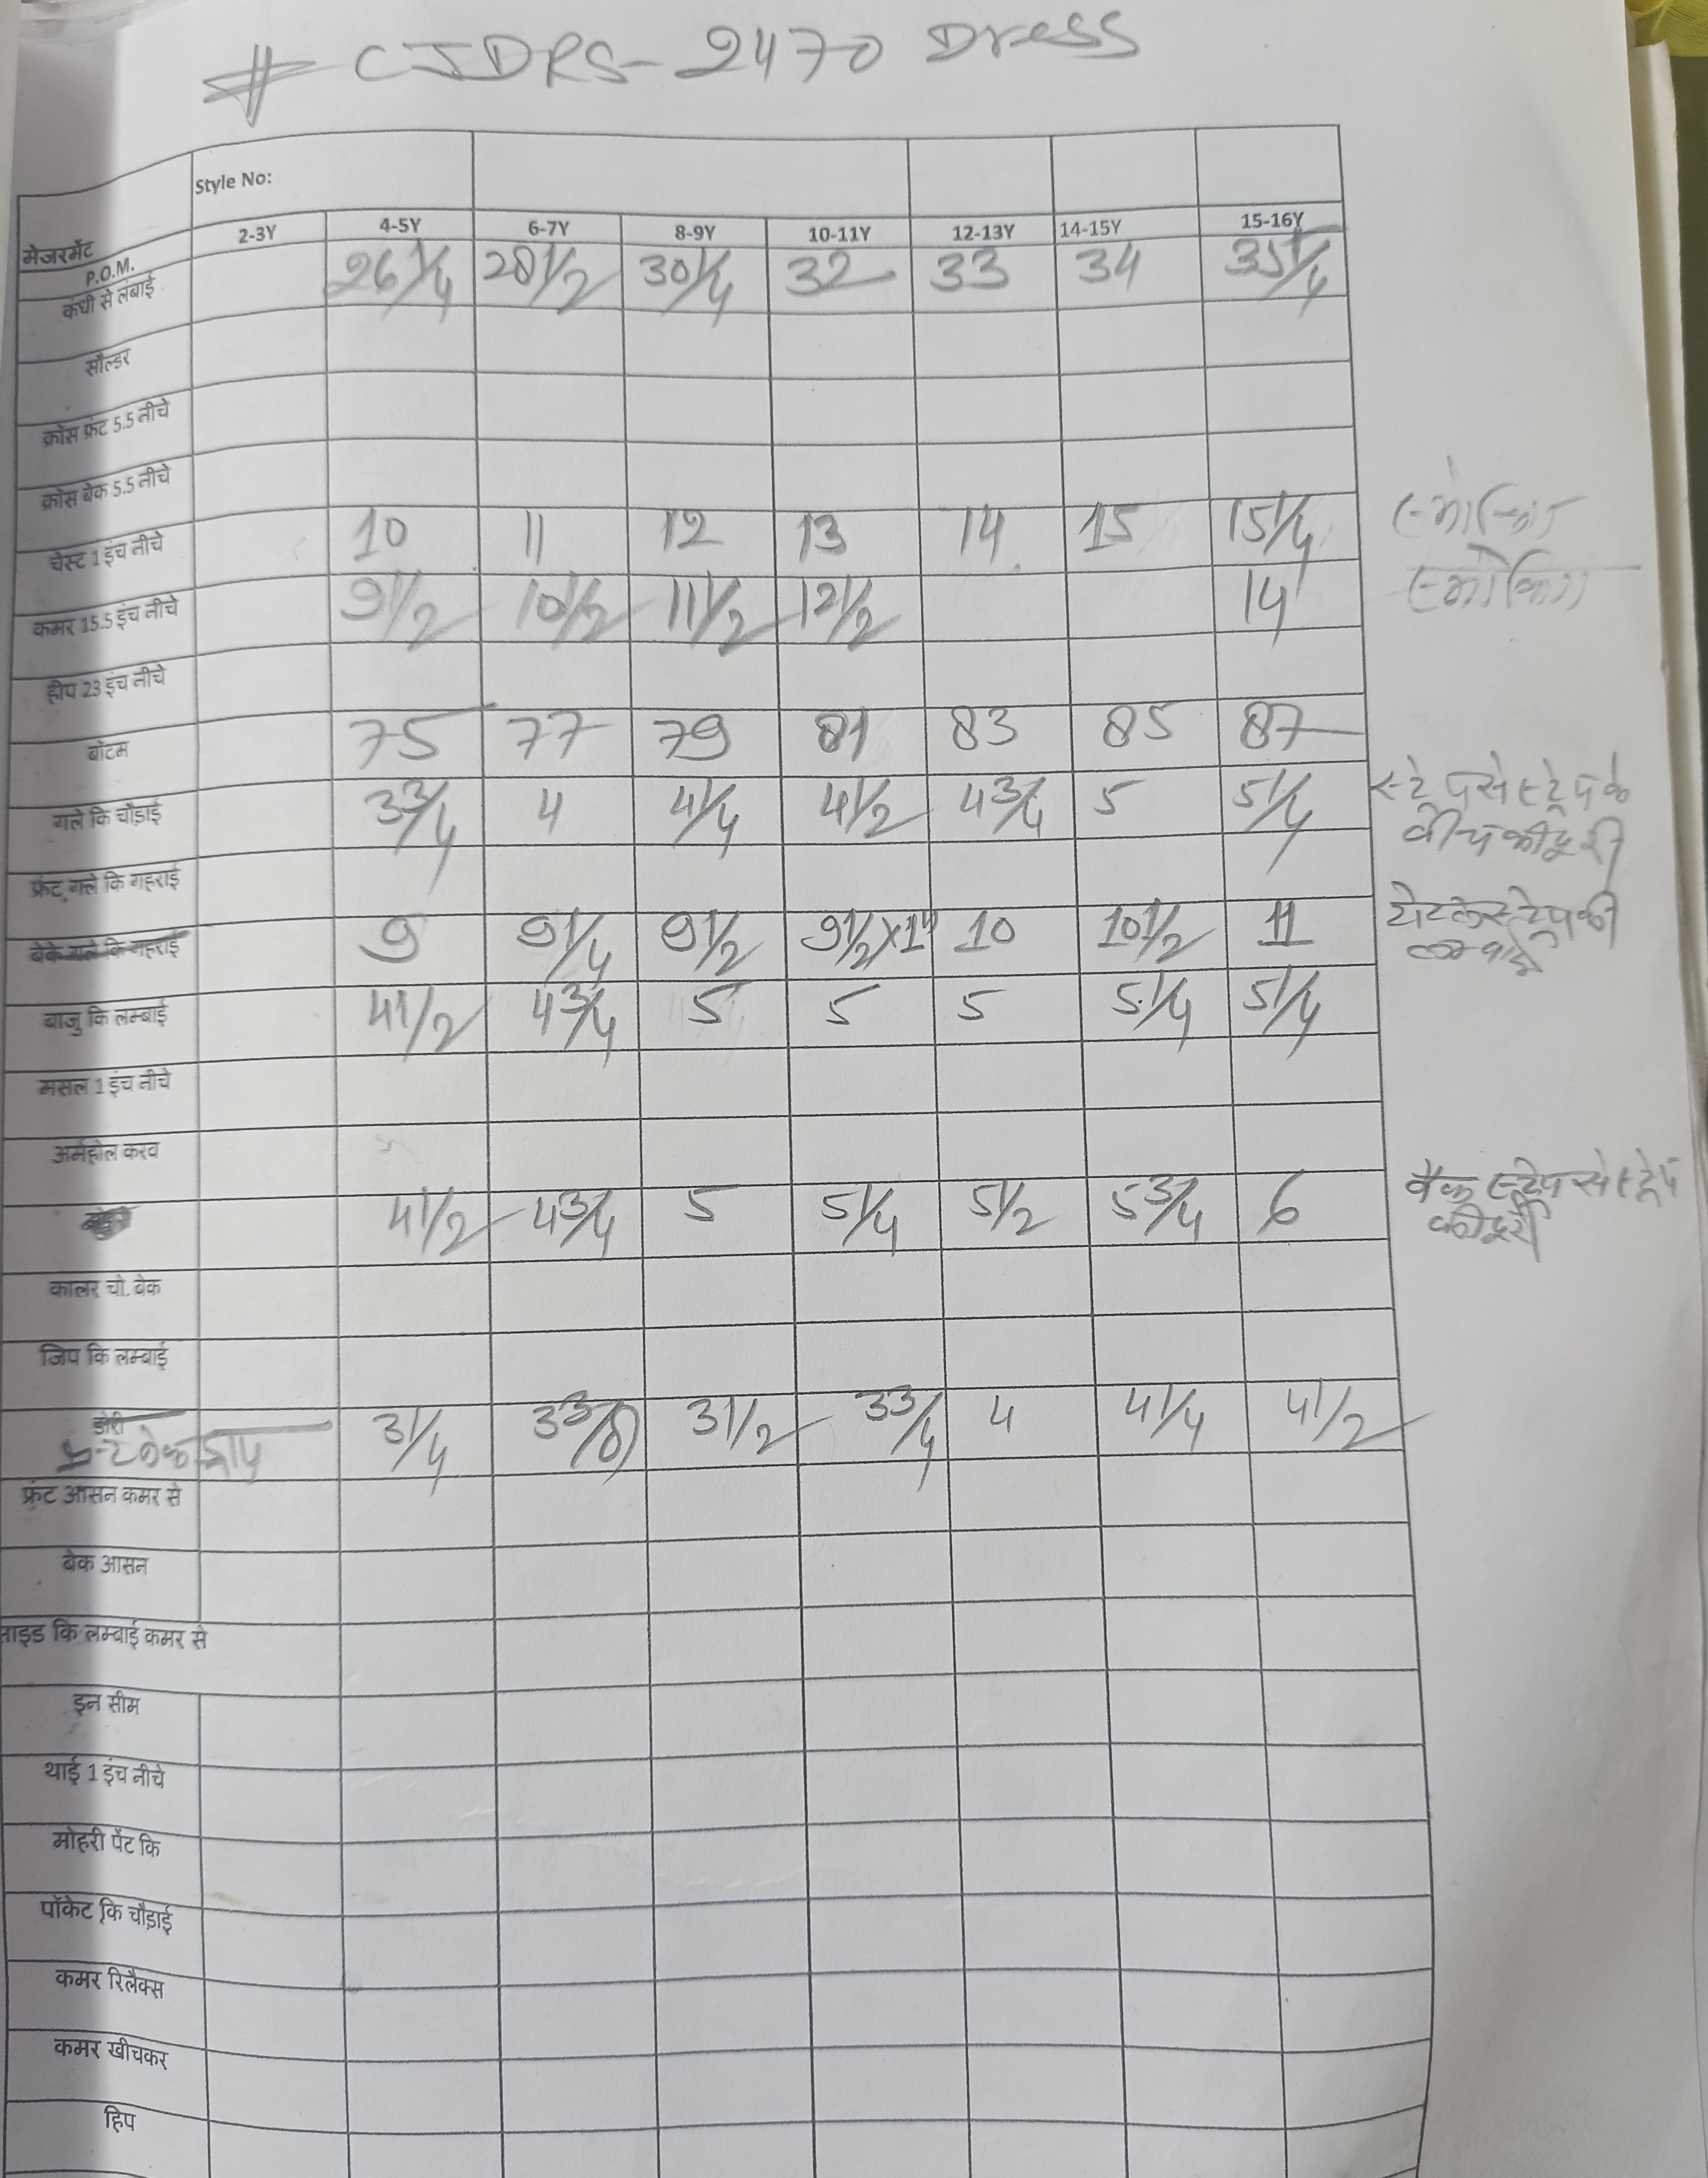 # CJDRS-2470 Dress
Style No:
मेजरमेंट P.O.M. 2-3Y 4-5Y 6-7Y 8-9Y 10-11Y 12-13Y 14-15Y 15-16Y
कंधी से लंबाई 26 1/4 28 1/2 30 1/4 32 33 34 35 1/4
सौल्डर
क्रॉस फ्रंट 5.5 नीचे
क्रॉस बेक 5.5 नीचे
चेस्ट 1 इंच नीचे 10 11 12 13 14 15 15 1/4 स्मोकिंग
कमर 15.5 इंच नीचे 9 1/2 10 1/2 11 1/2 12 1/2 14 स्मोकिंग
हीप 23 इंच नीचे
बोटम 75 77 79 81 83 85 87
गले कि चौड़ाई 3 3/4 4 4 1/4 4 1/2 4 3/4 5 5 1/4 स्ट्रेप से स्ट्रेप के
बीच की दूरी
फ्रंट गले कि गहराई
बेके गले कि गहराई 9 9 1/4 9 1/2 9 1/2 x 1" 10 10 1/2 11 स्ट्रेप की
बाजु कि लम्बाई 4 1/2 4 3/4 5 5 5 5 1/4 5 1/4
मसल 1 इंच नीचे
अर्महोल करव
4 1/2 4 3/4 5 5 1/4 5 1/2 5 3/4 6 बैक स्ट्रेप से स्ट्रेप
की दूरी
कालर चो. बेक
जिप कि लम्बाई
डोरी
फ्रन्ट बेक ड्राप 3 1/4 3 3/8 3 1/2 3 3/4 4 4 1/4 4 1/2
फ्रंट आसन कमर से
बेक आसन
साइड कि लम्बाई कमर से
इन सीम
थाई 1 इंच नीचे
मोहरी पेंट कि
पॉकेट कि चौड़ाई
कमर रिलैक्स
कमर खीचकर
हिप